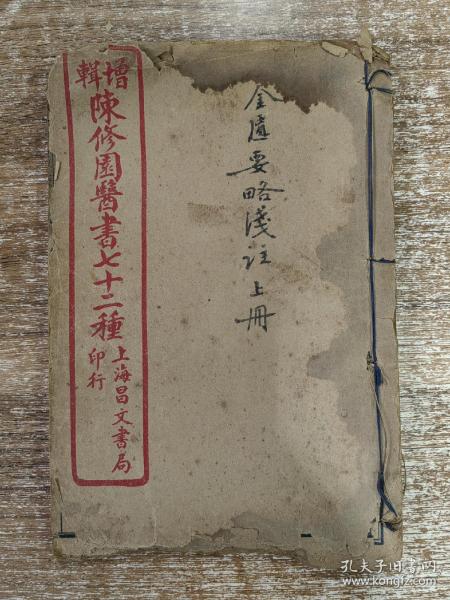 增輯陳修園醫書七十二種
上海昌文書局
印行
金匱要略淺註上冊
孔夫子旧书网
www.kongfz.com